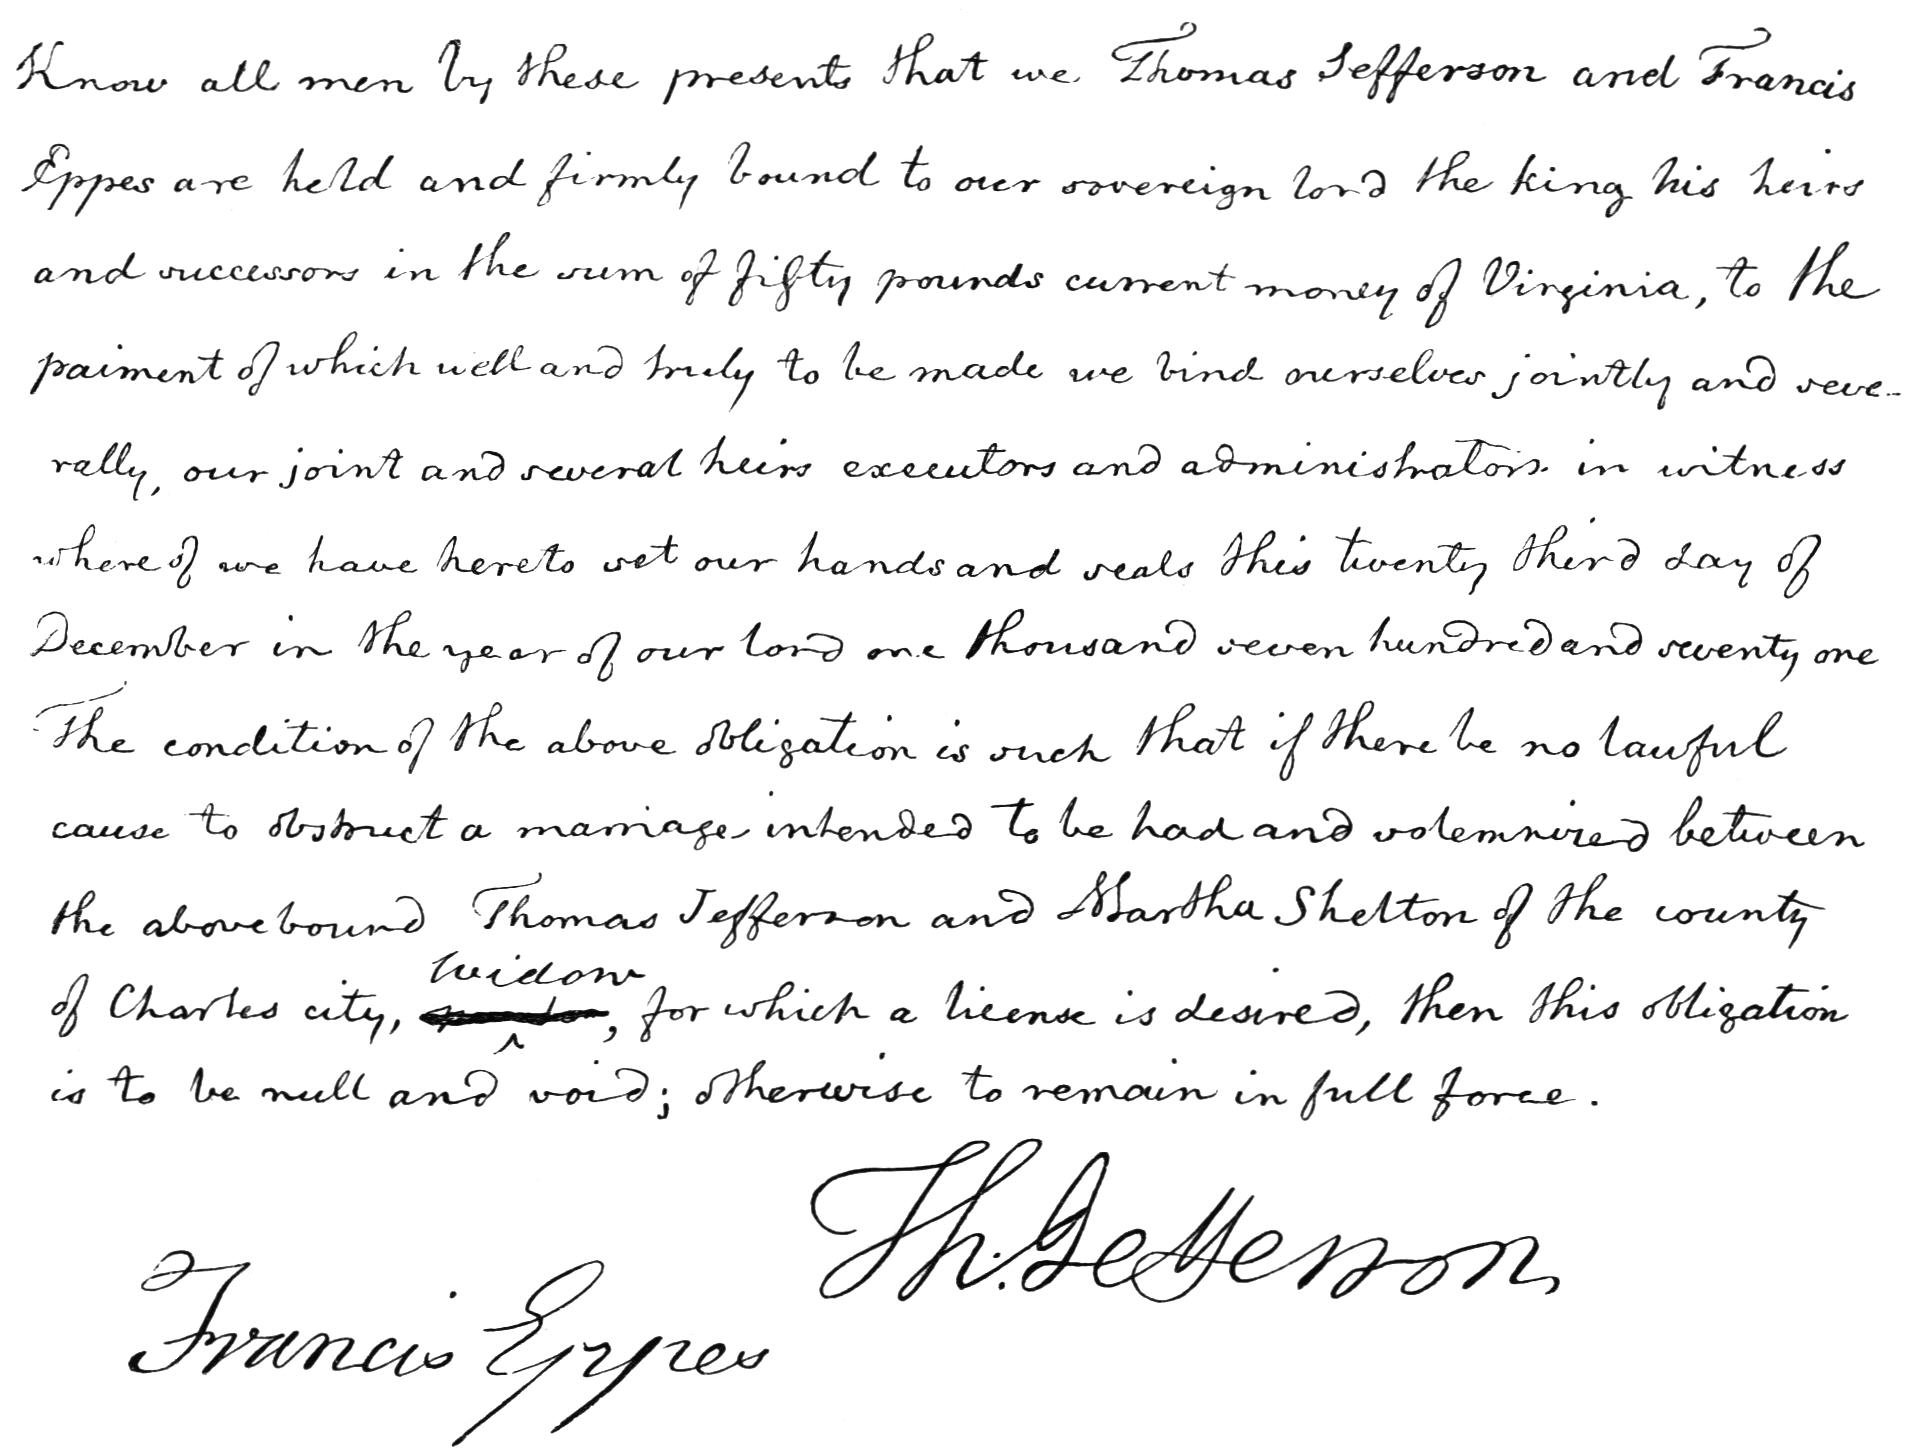 Know all men by these presents that we Thomas Jefferson and Francis
Eppes are held and firmly bound to our sovereign lord the king his heirs
and successors in the sum of fifty pounds current money of Virginia, to the
paiment of which well and truly to be made we bind ourselves jointly and seve-
rally, our joint and several heirs executors and administrators in witness
whereof we have hereto set our hands and seals this twenty third day of
December in the year of our lord one thousand seven hundred and seventy one
The condition of the above obligation is such that if there be no lawful
cause to obstruct a marriage intended to be had and solemnized between
the abovebound Thomas Jefferson and Martha Shelton of the county
widow
of Charles city, , for which a license is desired, then this obligation
is to be null and void; otherwise to remain in full force.
Th. Jefferson
Francis Eppes